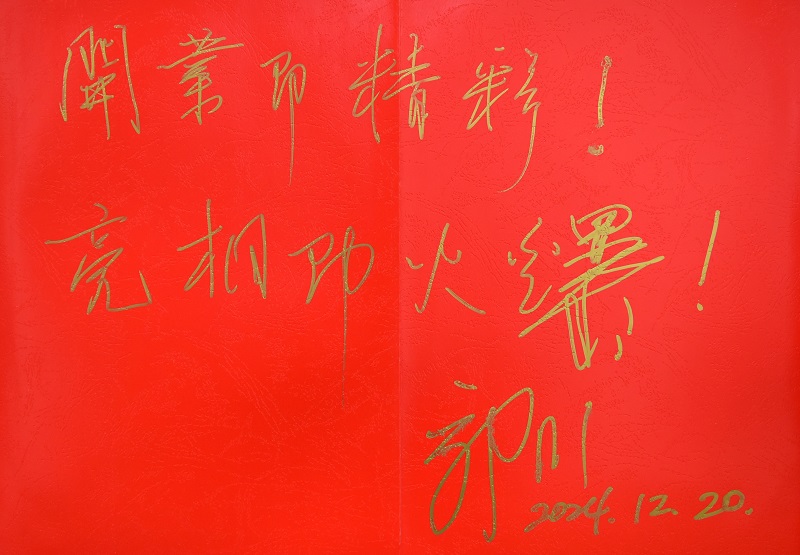 開業即精彩!
亮相即火爆!
郭川
2024.12.20.